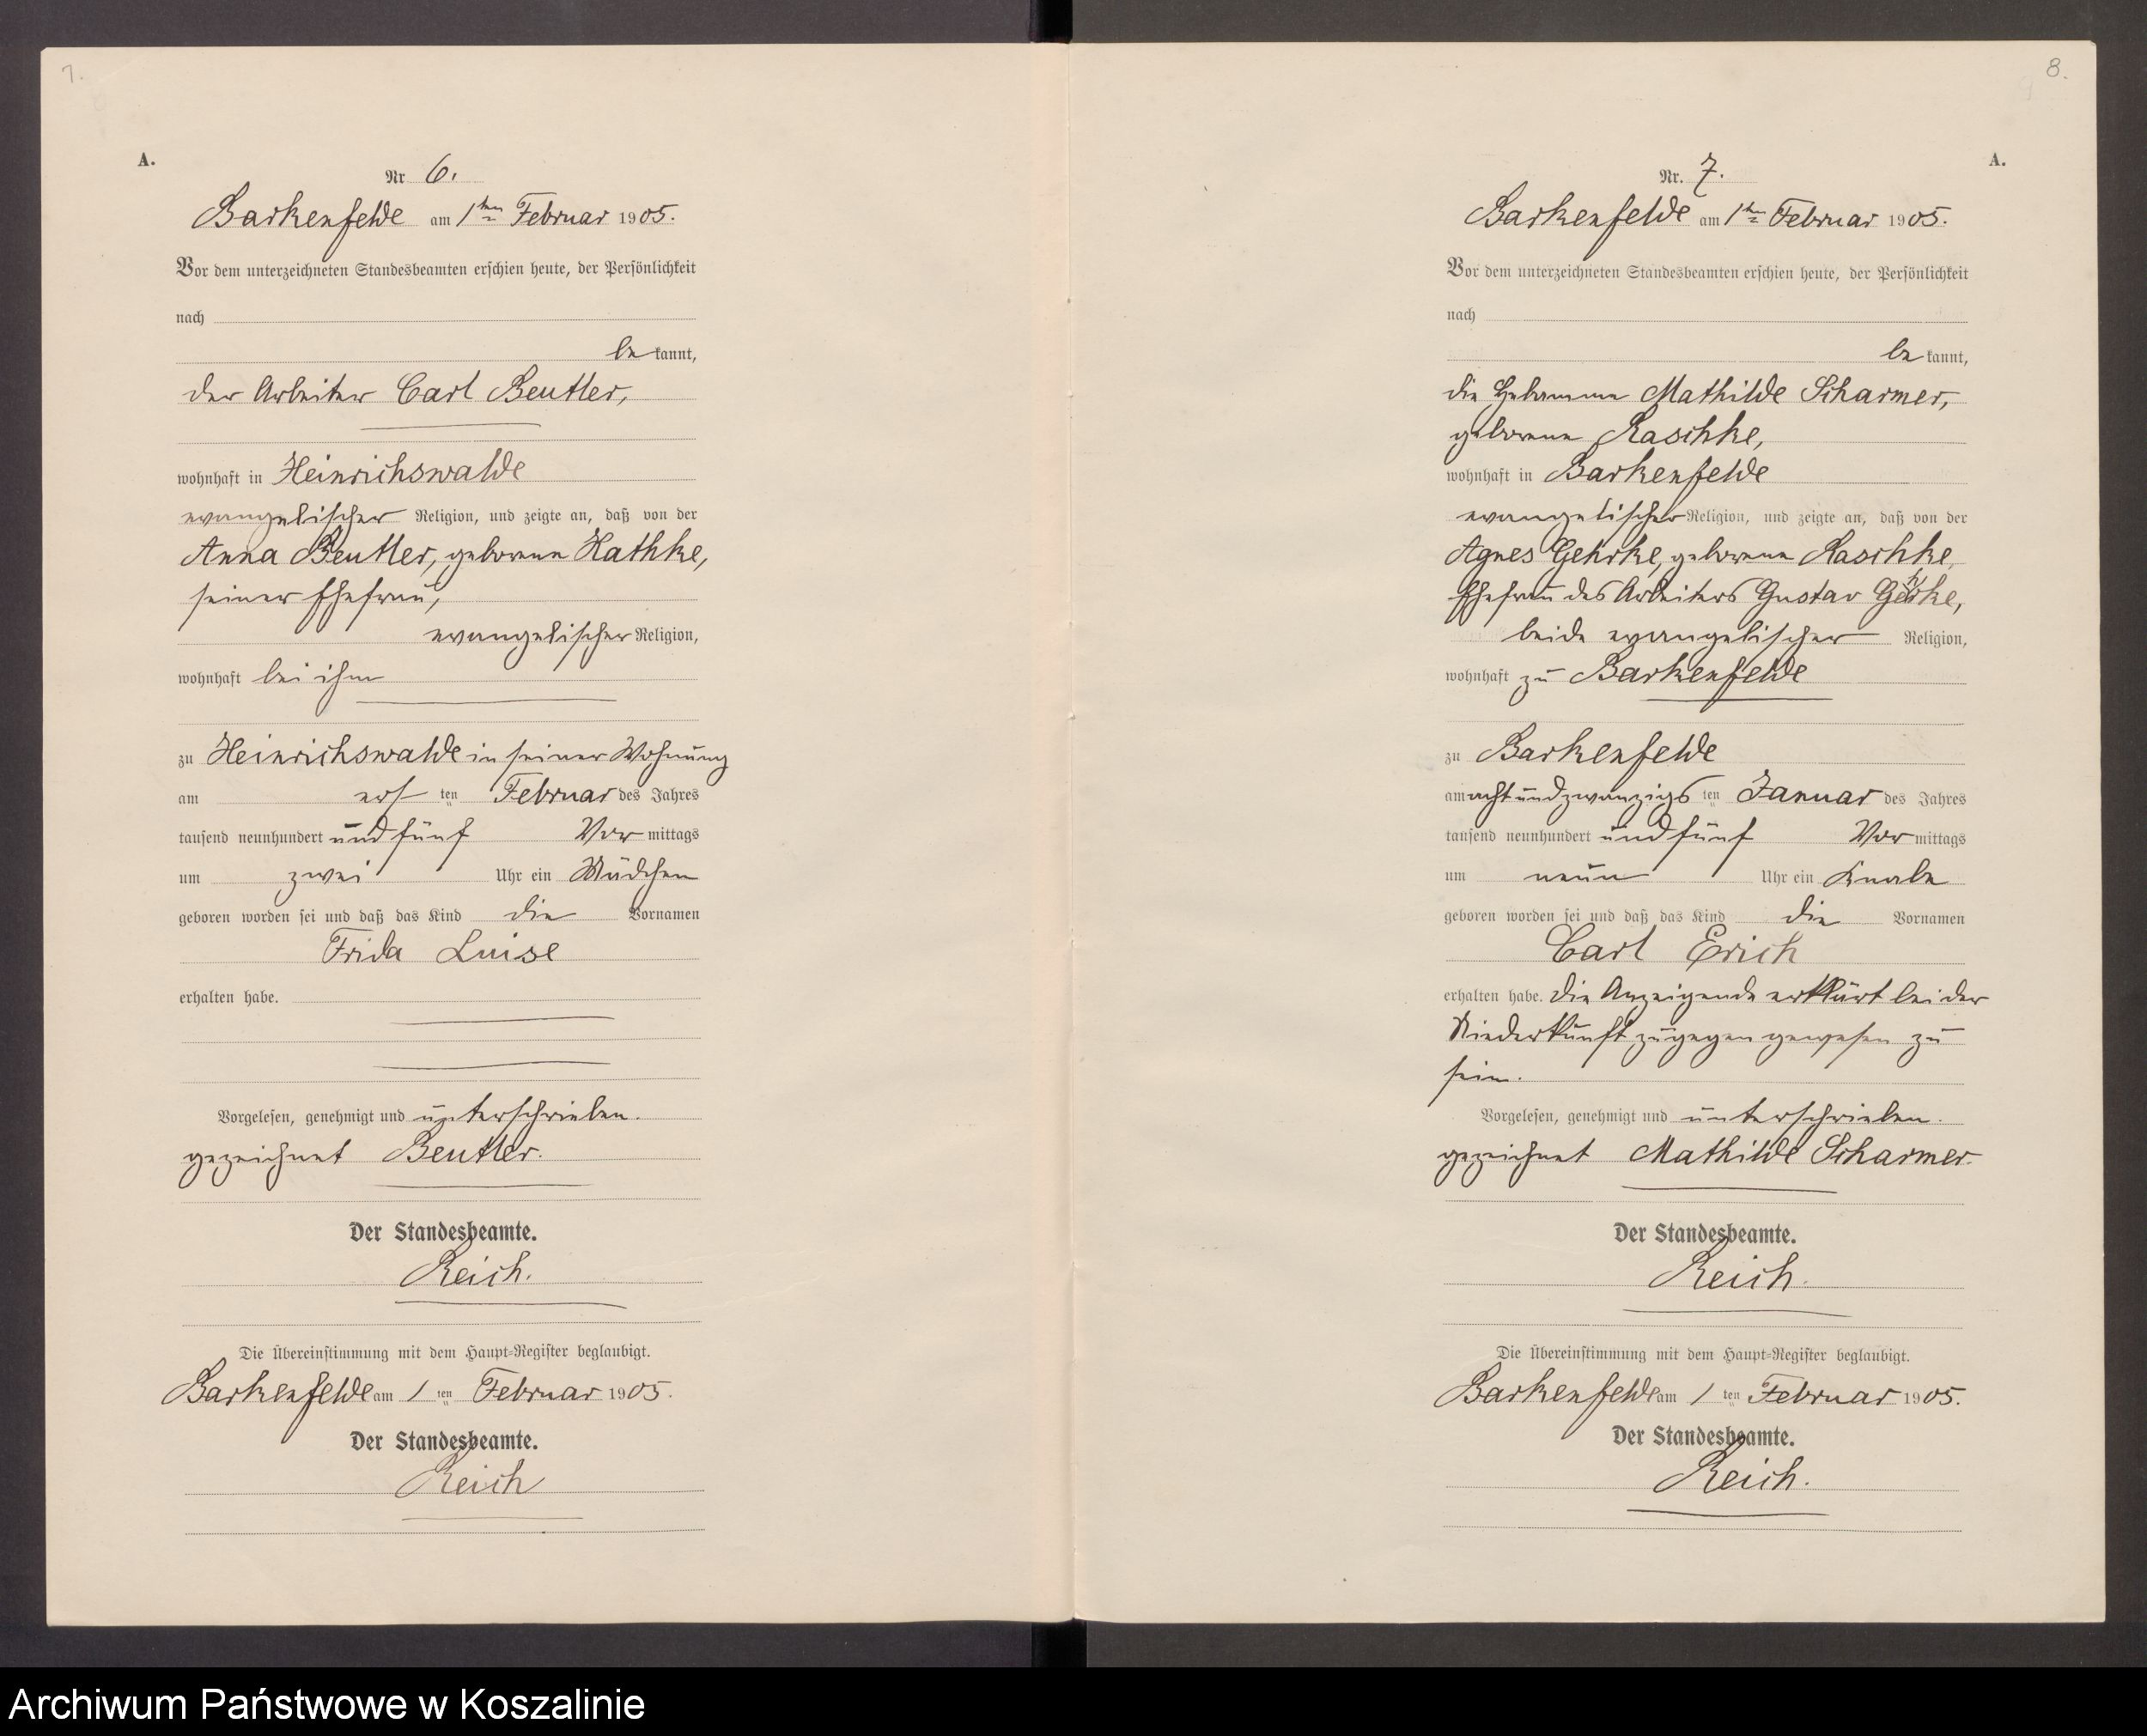 7.
A.
Nr 6.
Barkenfelde am 1ten Februar 1905.
Vor dem unterzeichneten Standesbeamten erschien heute, der Persönlichkeit
nach
be kannt,
der Arbeiter Carl Beutler,
wohnhaft in Heinrichswalde
evangelischer Religion, und zeigte an, daß von der
Anna Beutler, geborene Hathke,
seiner Ehefrau,
evangelischer Religion,
wohnhaft bei ihm
zu Heinrichswalde in seiner Wohnung
am erst ten Februar des Jahres
tausend neunhundert und fünf Vor mittags
um zwei Uhr ein Mädchen
geboren worden sei und daß das Kind die Vornamen
Frida Luise
erhalten habe.
Vorgelesen, genehmigt und unterschrieben.
gezeichnet Beutler.
Der Standesbeamte.
Reich.
Die Übereinstimmung mit dem Haupt-Register beglaubigt.
Barkenfelde am 1 ten Februar 1905.
Der Standesbeamte.
Reich
8.
A.
Nr. 7.
Barkenfelde am 1ten Februar 1905.
Vor dem unterzeichneten Standesbeamten erschien heute, der Persönlichkeit
nach
be kannt,
die Hebamme Mathilde Scharmer,
geborene Raschke,
wohnhaft in Barkenfelde
evangelischer Religion, und zeigte an, daß von der
Agnes Gehrke, geborene Raschke,
Ehefrau des Arbeiters Gustav Gehrke,
beide evangelischer Religion,
wohnhaft zu Barkenfelde
zu Barkenfelde
am achtundzwanzigs ten Januar des Jahres
tausend neunhundert und fünf Vor mittags
um neun Uhr ein Knabe
geboren worden sei und daß das Kind die Vornamen
Carl Erich
erhalten habe. Die Anzeigende erklärt bei der
Niederkunft zugegen gewesen zu
sein.
Vorgelesen, genehmigt und unterschrieben.
gezeichnet Mathilde Scharmer.
Der Standesbeamte.
Reich.
Die Übereinstimmung mit dem Haupt-Register beglaubigt.
Barkenfelde am 1 ten Februar 1905.
Der Standesbeamte.
Reich.
Archiwum Państwowe w Koszalinie